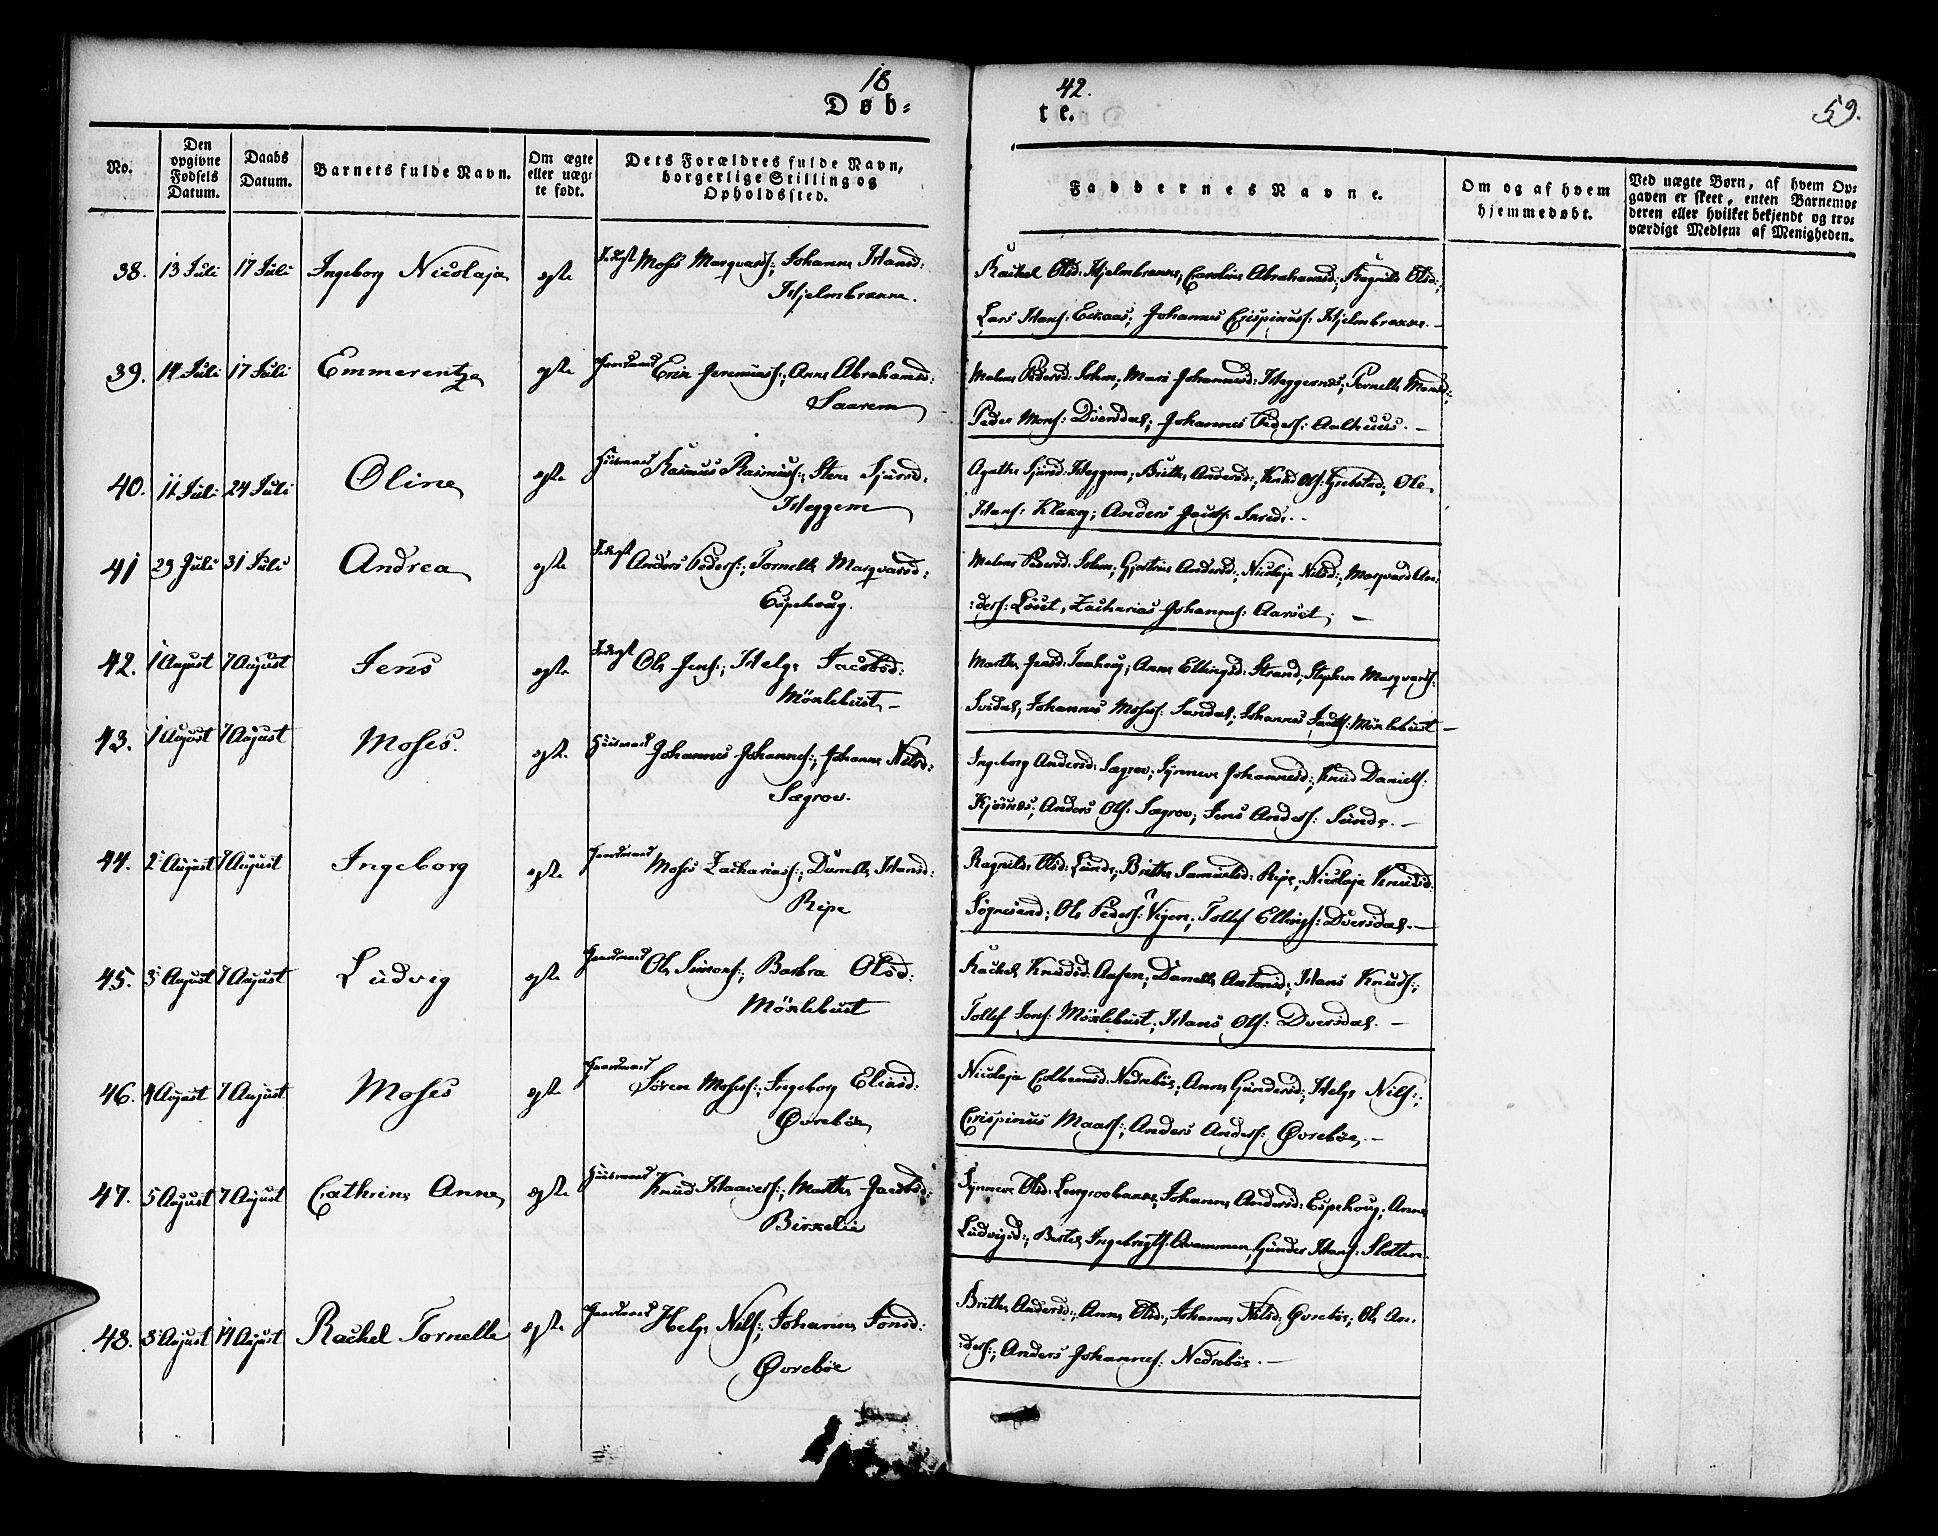 18
Døb=
42.
te.
59.
No.
Den opgivne Fødsels Datum.
Daabs Datum.
Barnets fulde Navn.
Om ægte eller uæg= te født.
Dets Forældres fulde Navn, borgerlige Stilling og Opholdssted.
Faddernes Navne.
Om og af hvem hjemmedøbt.
Ved uægte Børn, af hvem Op= gaven er skeet, enten Barnemo= deren eller hvilket bekjendt og tro= værdigt Medlem af Menigheden.
38. 13 Juli 17 Juli Ingeborg Nicolaja egte Moses Marqvards:, Johanne Hansd:
Hjelmbrekke.
Rachel Olsd: Hjelmbrekke, Caroline Abrahamsd:, Ragnild Olsd:,
Lars Hans: Eikaas; Johannes Crispinus: Hjelmbrekke. –
39. 14 Juli 17 Juli Emmerentze egte Gaardmand Erik Jeremias:, Anne Abrahamsd:
Saarem
Malene Pedersd: Solem, Mari Johannesd: Heggernes; Pernelle Monsd:,
Peder Mons: Dversdal; Johannes Peders: Aalhuus. –
40. 11 Juli 24 Juli Oline egte Huusmand Rasmus Rasmus:, Sjursd:
Heggem
Agathe Sjursd: Heggem; Brithe Andersd:, Knud Ols: Ole
Hans: Anders –
41 29 Juli 31 Juli Andrea egte Anders Peders:, Tornelle Marqvardsd:
Espehoug.
Malene Pedersd: Solem; Gjertrue Andersd:, Nicolaja Nilsd:, Marqvard An:
:ders: Løset, Zacharias Johannes: Aarset; –
42. 1 August 7 August Jens egte Ole Jens:, Helge Jacobsd:
Möklebust –
Marthe Jensd: Anne Ellingsd: Strand, Stephen Marqvards:
Johannes Moses: Sandal, Johannes Möklebust –
43. 1 August 7 August Moses. egte. Huusmand Johannes Johannes:, Johanne Nilsd:
Sægrov.
Ingeborg Andersd: Sægrov, Synneve Johannesd:, Knud Daniels:
Kjøsnes; Anders Ols: Sægrov, Jens Anders: Sunde. –
44. 2 August 7 August Ingeborg egte Gaardmand Moses Zacharias:, Danelle Hansd:
Ripe
Ragnilde Olsd: Lunde, Brithe Samuelsd: Ripe, Nicolaja Knudsd:
Søgnesand; Ole Peders: Tollef Ellings: Dversdal. –
45. 3 August 7 August Ludvig egte Gaardmand Ole Simons:, Barbra Olsd:
Möklebust
Rachel Knudsd: Aasen, Danelle Antonisd:, Hans Knuds:,
Tollef Jons: Möklebust, Hans Ols: Dversdal. –
46. 4 August 7 August Moses egte Gaardmand Søren Moses:, Ingeborg Eliasd:
Øvrebøe
Nicolaja Colbensd: Nedrebøe, Anne Gundersd:, Helge Nils:,
Crispinus Maas:, Anders Anders: Øvrebøe. –
47. 5 August 7 August Cathrine Anne egte Huusmand Knud Marthe Jacobsd:
Birkelie
Synneve Olsd: Johanne Andersd: Espehoug, Anne
Ludvigsd:, Bertel Ingebrigts: Gunder Hans: Slotten.
48. 3 August 14 August Rachel Tornelle egte Gaardmand Helge Nils:, Johanne Jonsd:
Øvrebøe
Brithe Andersd:, Anne Olsd:, Johanne Nilsd: Øvrebøe, Ole An:
:ders:, Anders Johannes: Nedrebøe. –